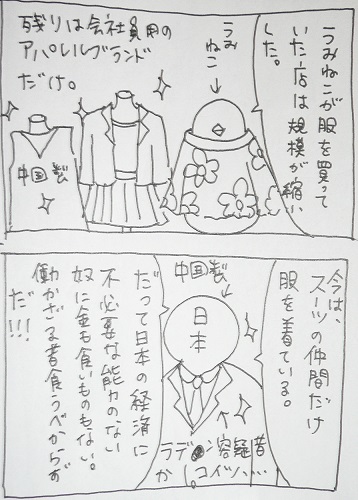 うみねこが服を買って
いた店は規模が縮小
した。
うみ
ねこ
残りは会社員用の
アパレルブランド
だけ。
中国製
今は、
スーツの仲間だけ
服を着ている。
中国製
日本
ラデ●ン容疑者
か!コイツ、、、、、
だって日本の経済に
不必要な能力のない
奴に金も食いものもない。
働かざる者食うべからず
だ!!!